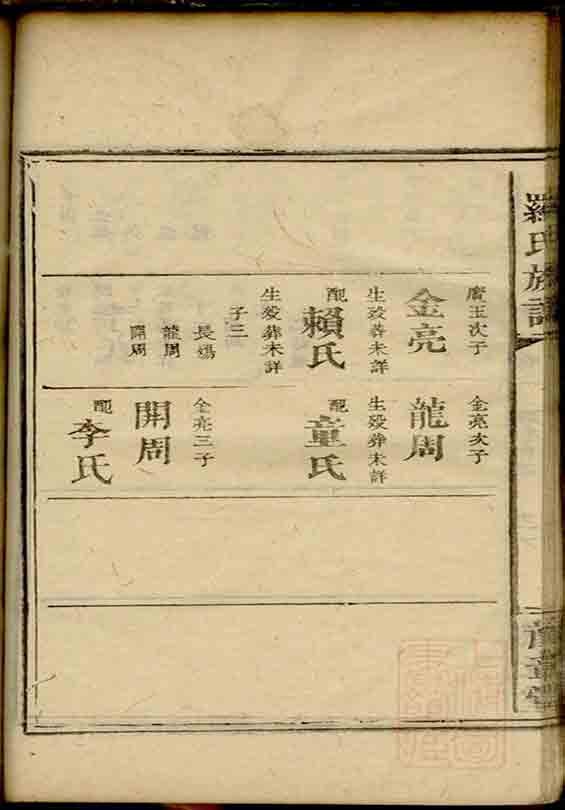 羅氏族譜
賡玉次子
金亮
生歿葬未詳
配
賴氏
生歿葬未詳
子三
長煬
龍周
開周
金亮次子
龍周
生歿葬未詳
配
童氏
金亮三子
開周
配
李氏
章堂